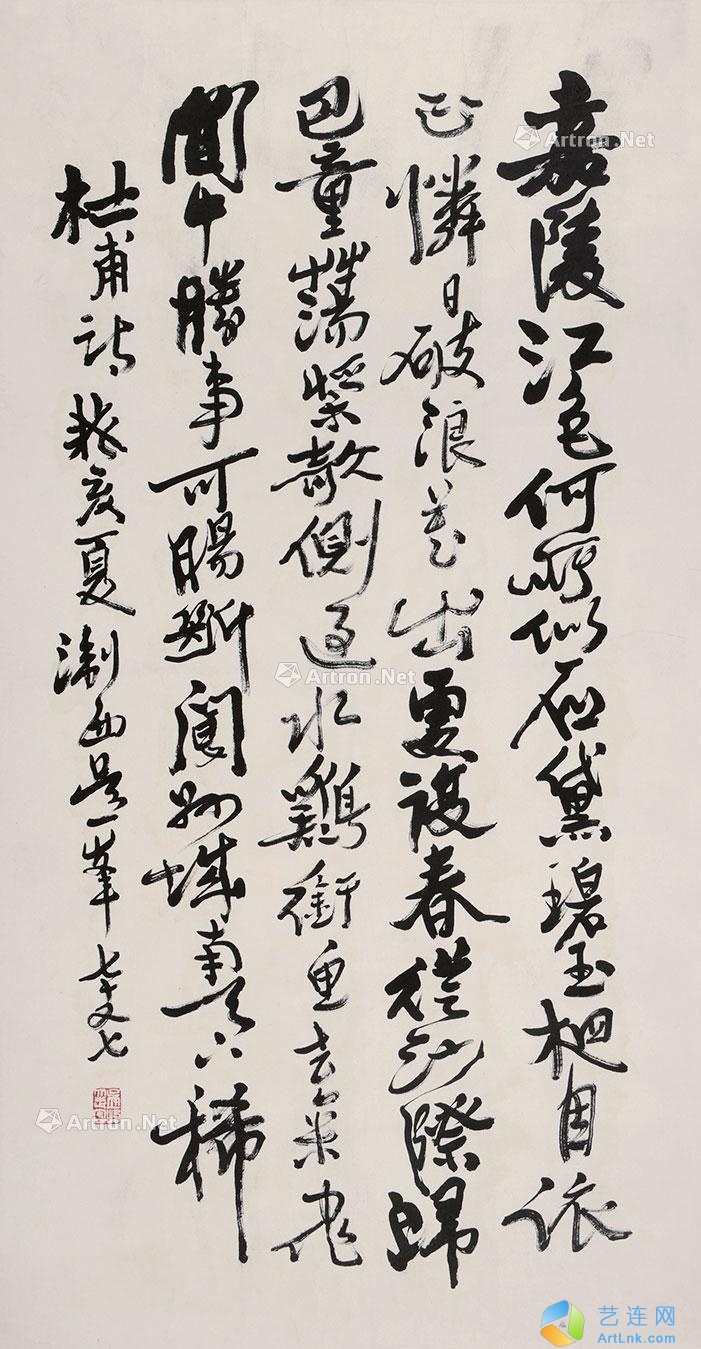 嘉陵江色何所似石黛碧玉相因依
正憐日破浪花出更復春從沙際歸
巴童蕩槳欹側過水鷄銜魚去來飛
閬中勝事可腸斷閬州城南天下稀
杜甫詩癸亥夏淛西吴一峯七十又七
Artron.Net
Artron.Net
Artron.Net
Artron.Net
艺连网
ArtLnk.com